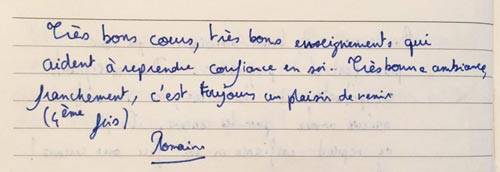 Très bons cours, très bons enseignements qui
aident à reprendre confiance en soi. Très bonne ambiance,
franchement, c'est toujours un plaisir de venir
(4ème fois)
Romain